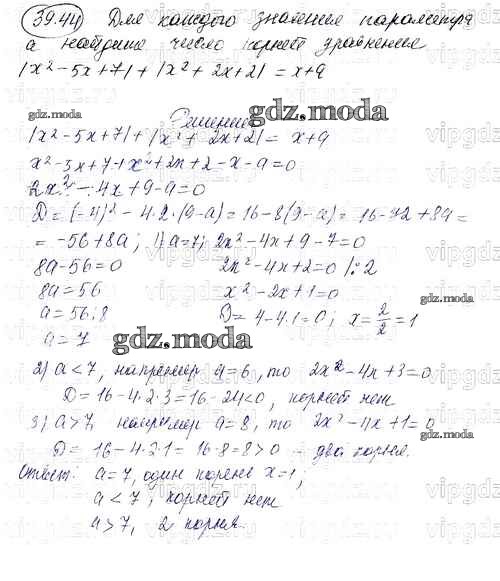 39.44 Для каждого значения параметра
а найдите число корней уравнения
|x² - 5x + 7| + |x² + 2x + 2| = x + a
Решение
gdz.moda
gdz.moda
|x² - 5x + 7| + |x² + 2x + 2| = x + a
x² - 5x + 7 + x² + 2x + 2 - x - a = 0
2x² - 4x + 9 - a = 0
gdz.moda
D = (-4)² - 4·2·(9-a) = 16 - 8(9-a) = 16 - 72 + 8a =
= -56 + 8a; 1) a = 7; 2x² - 4x + 9 - 7 = 0
8a - 56 = 0 2x² - 4x + 2 = 0 |:2
8a = 56 x² - 2x + 1 = 0
gdz.moda
a = 56:8 D = 4 - 4·1 = 0; x = 2/2 = 1
a = 7
gdz.moda
2) a < 7, например a = 6, то 2x² - 4x + 3 = 0
D = 16 - 4·2·3 = 16 - 24 < 0, корней нет
3) a > 7, например a = 8, то 2x² - 4x + 1 = 0
gdz.moda
D = 16 - 4·2·1 = 16 - 8 = 8 > 0 - два корня.
Ответ: a = 7, один корень x = 1;
a < 7, корней нет
a > 7, 2 корня